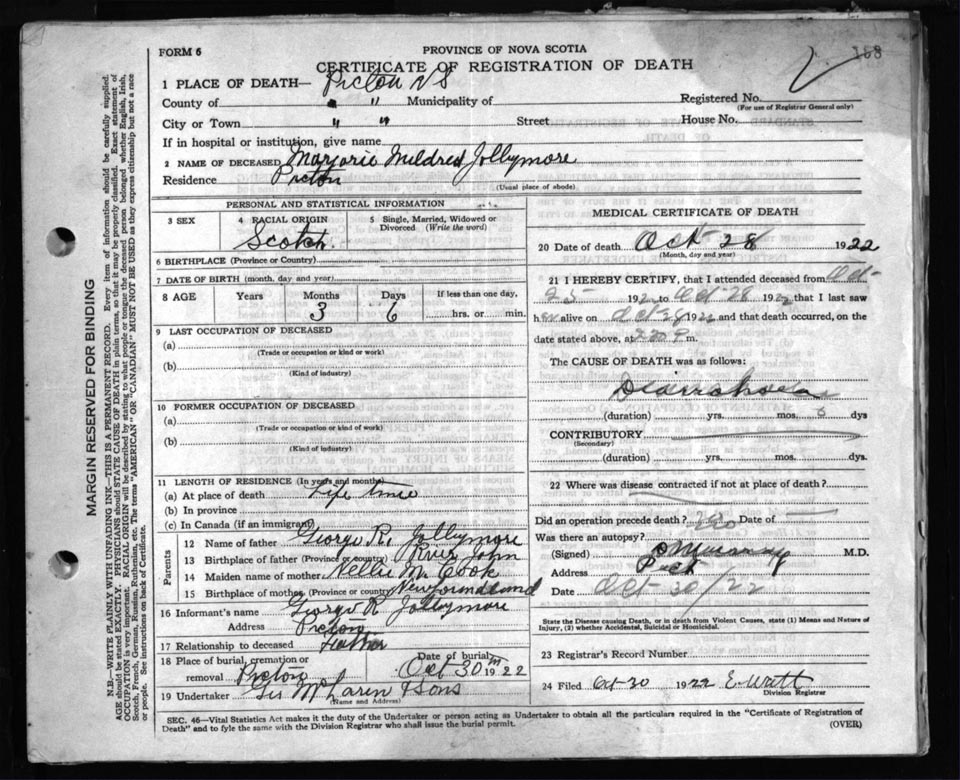 158
FORM 6
PROVINCE OF NOVA SCOTIA
CERTIFICATE OF REGISTRATION OF DEATH
1 PLACE OF DEATH— Pictou N S
County of " " Municipality of Registered No.
(For use of Registrar General only)
City or Town " " Street House No.
If in hospital or institution, give name
2 NAME OF DECEASED Marjorie Mildred Jollymore
Residence Pictou (Usual place of abode)
PERSONAL AND STATISTICAL INFORMATION
3 SEX 4 RACIAL ORIGIN Scotch. 5 Single, Married, Widowed or Divorced (Write the word)
6 BIRTHPLACE (Province or Country)
7 DATE OF BIRTH (month, day and year)
8 AGE Years Months Days If less than one day,
3 6 hrs. or min.
9 LAST OCCUPATION OF DECEASED
(a)
(Trade or occupation or kind or work)
(b)
(Kind of industry)
10 FORMER OCCUPATION OF DECEASED
(a)
(Trade or occupation or kind of work)
(b)
(Kind of industry)
11 LENGTH OF RESIDENCE (In years and months)
(a) At place of death Life time
(b) In province
(c) In Canada (if an immigrant)
Parents
12 Name of father George R. Jollymore
13 Birthplace of father (Province or country) River John
14 Maiden name of mother Nellie M. Cook
15 Birthplace of mother (Province or country) Newfoundland
16 Informant's name George R Jollymore
Address Pictou
17 Relationship to deceased Father
18 Place of burial, cremation or removal Pictou Date of burial Oct 30 1922
19 Undertaker McLaren & Sons
(Name and Address)
MEDICAL CERTIFICATE OF DEATH
20 Date of death Oct 28 1922
(Month, day and year)
21 I HEREBY CERTIFY, that I attended deceased from Oct
25 1922 to Oct 28 1922 that I last saw
her alive on Oct 28 1922 and that death occurred, on
date stated above, at m.
The CAUSE OF DEATH was as follows:
Diarrhoea
(duration) yrs. mos. dys
CONTRIBUTORY
(Secondary)
(duration) yrs. mos. dys.
22 Where was disease contracted if not at place of death?
Did an operation precede death? no Date of
Was there an autopsy?
(Signed) M.D.
Address Pict
Date Oct 30/22
State the Disease causing Death, or in death from Violent Causes, state (1) Means and Nature of
Injury, (2) whether Accidental, Suicidal or Homicidal.
23 Registrar's Record Number
24 Filed Oct 30 1922
Division Registrar
SEC. 46—Vital Statistics Act makes it the duty of the Undertaker or person acting as Undertaker to obtain all the particulars required in the "Certificate of Registration of
Death" and to fyle the same with the Division Registrar who shall issue the burial permit. (OVER)
MARGIN RESERVED FOR BINDING
N.B.—WRITE PLAINLY WITH UNFADING INK—THIS IS A PERMANENT RECORD. Every item of information should be carefully supplied.
AGE should be stated EXACTLY. PHYSICIANS should STATE CAUSE OF DEATH in plain terms, so that it may be properly classified. Exact statement of
OCCUPATION is very important. RACIAL ORIGIN will be described by stating to what people or tongue the deceased person belonged whether English, Irish,
Scotch, French, German, Russian, Ruthenian, etc. The terms "AMERICAN" OR "CANADIAN" MUST NOT BE USED as they express citizenship but not a race
or people. See instructions on back of Certificate.